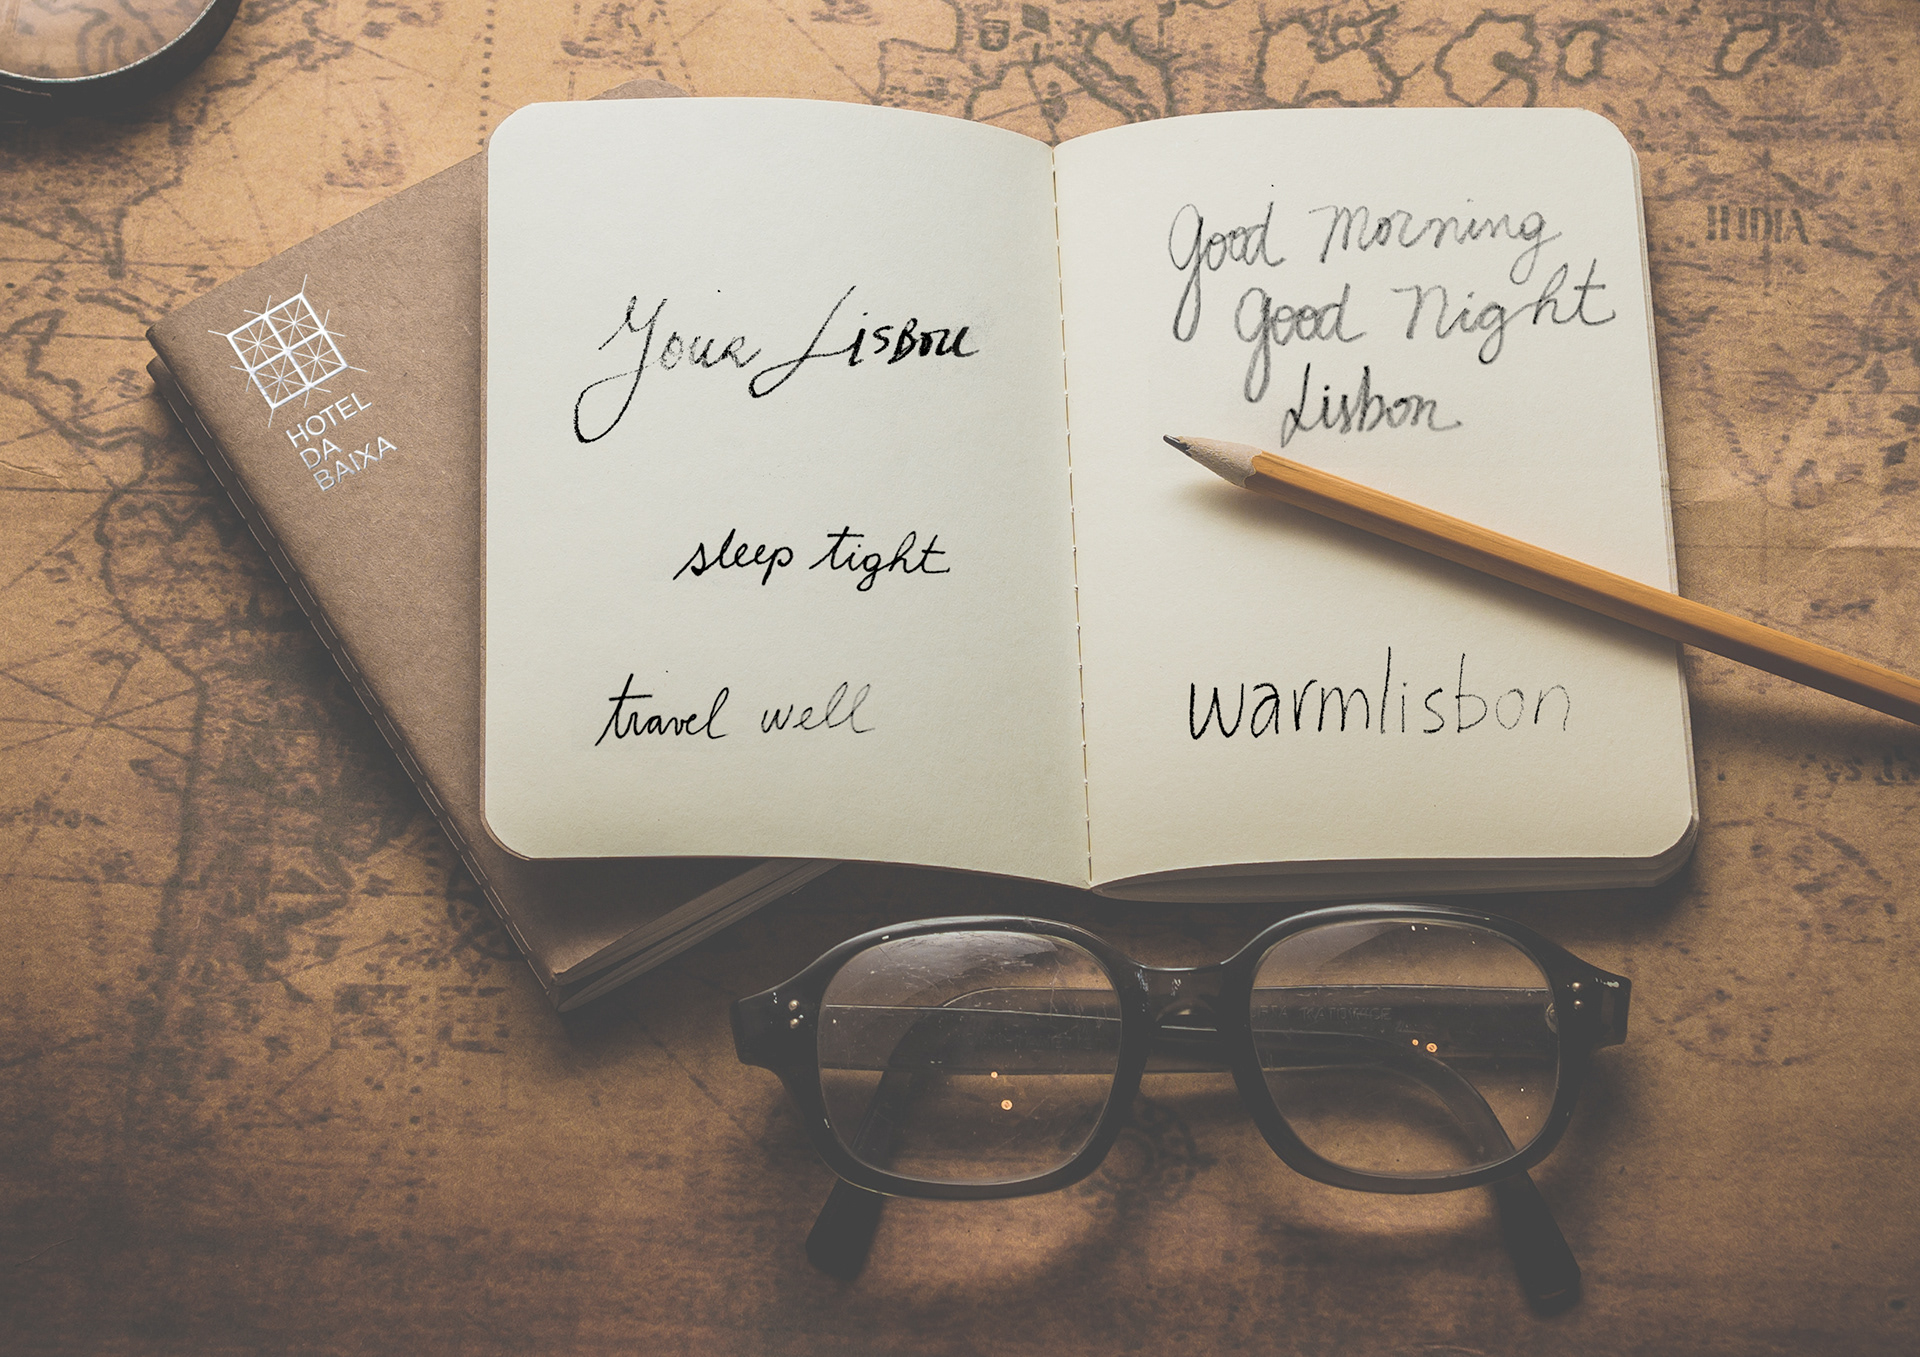 HOTEL
DA
BAIXA
Your Lisbon
sleep tight
travel well
Good Morning
Good Night
Lisbon
warmlisbon
INDIA